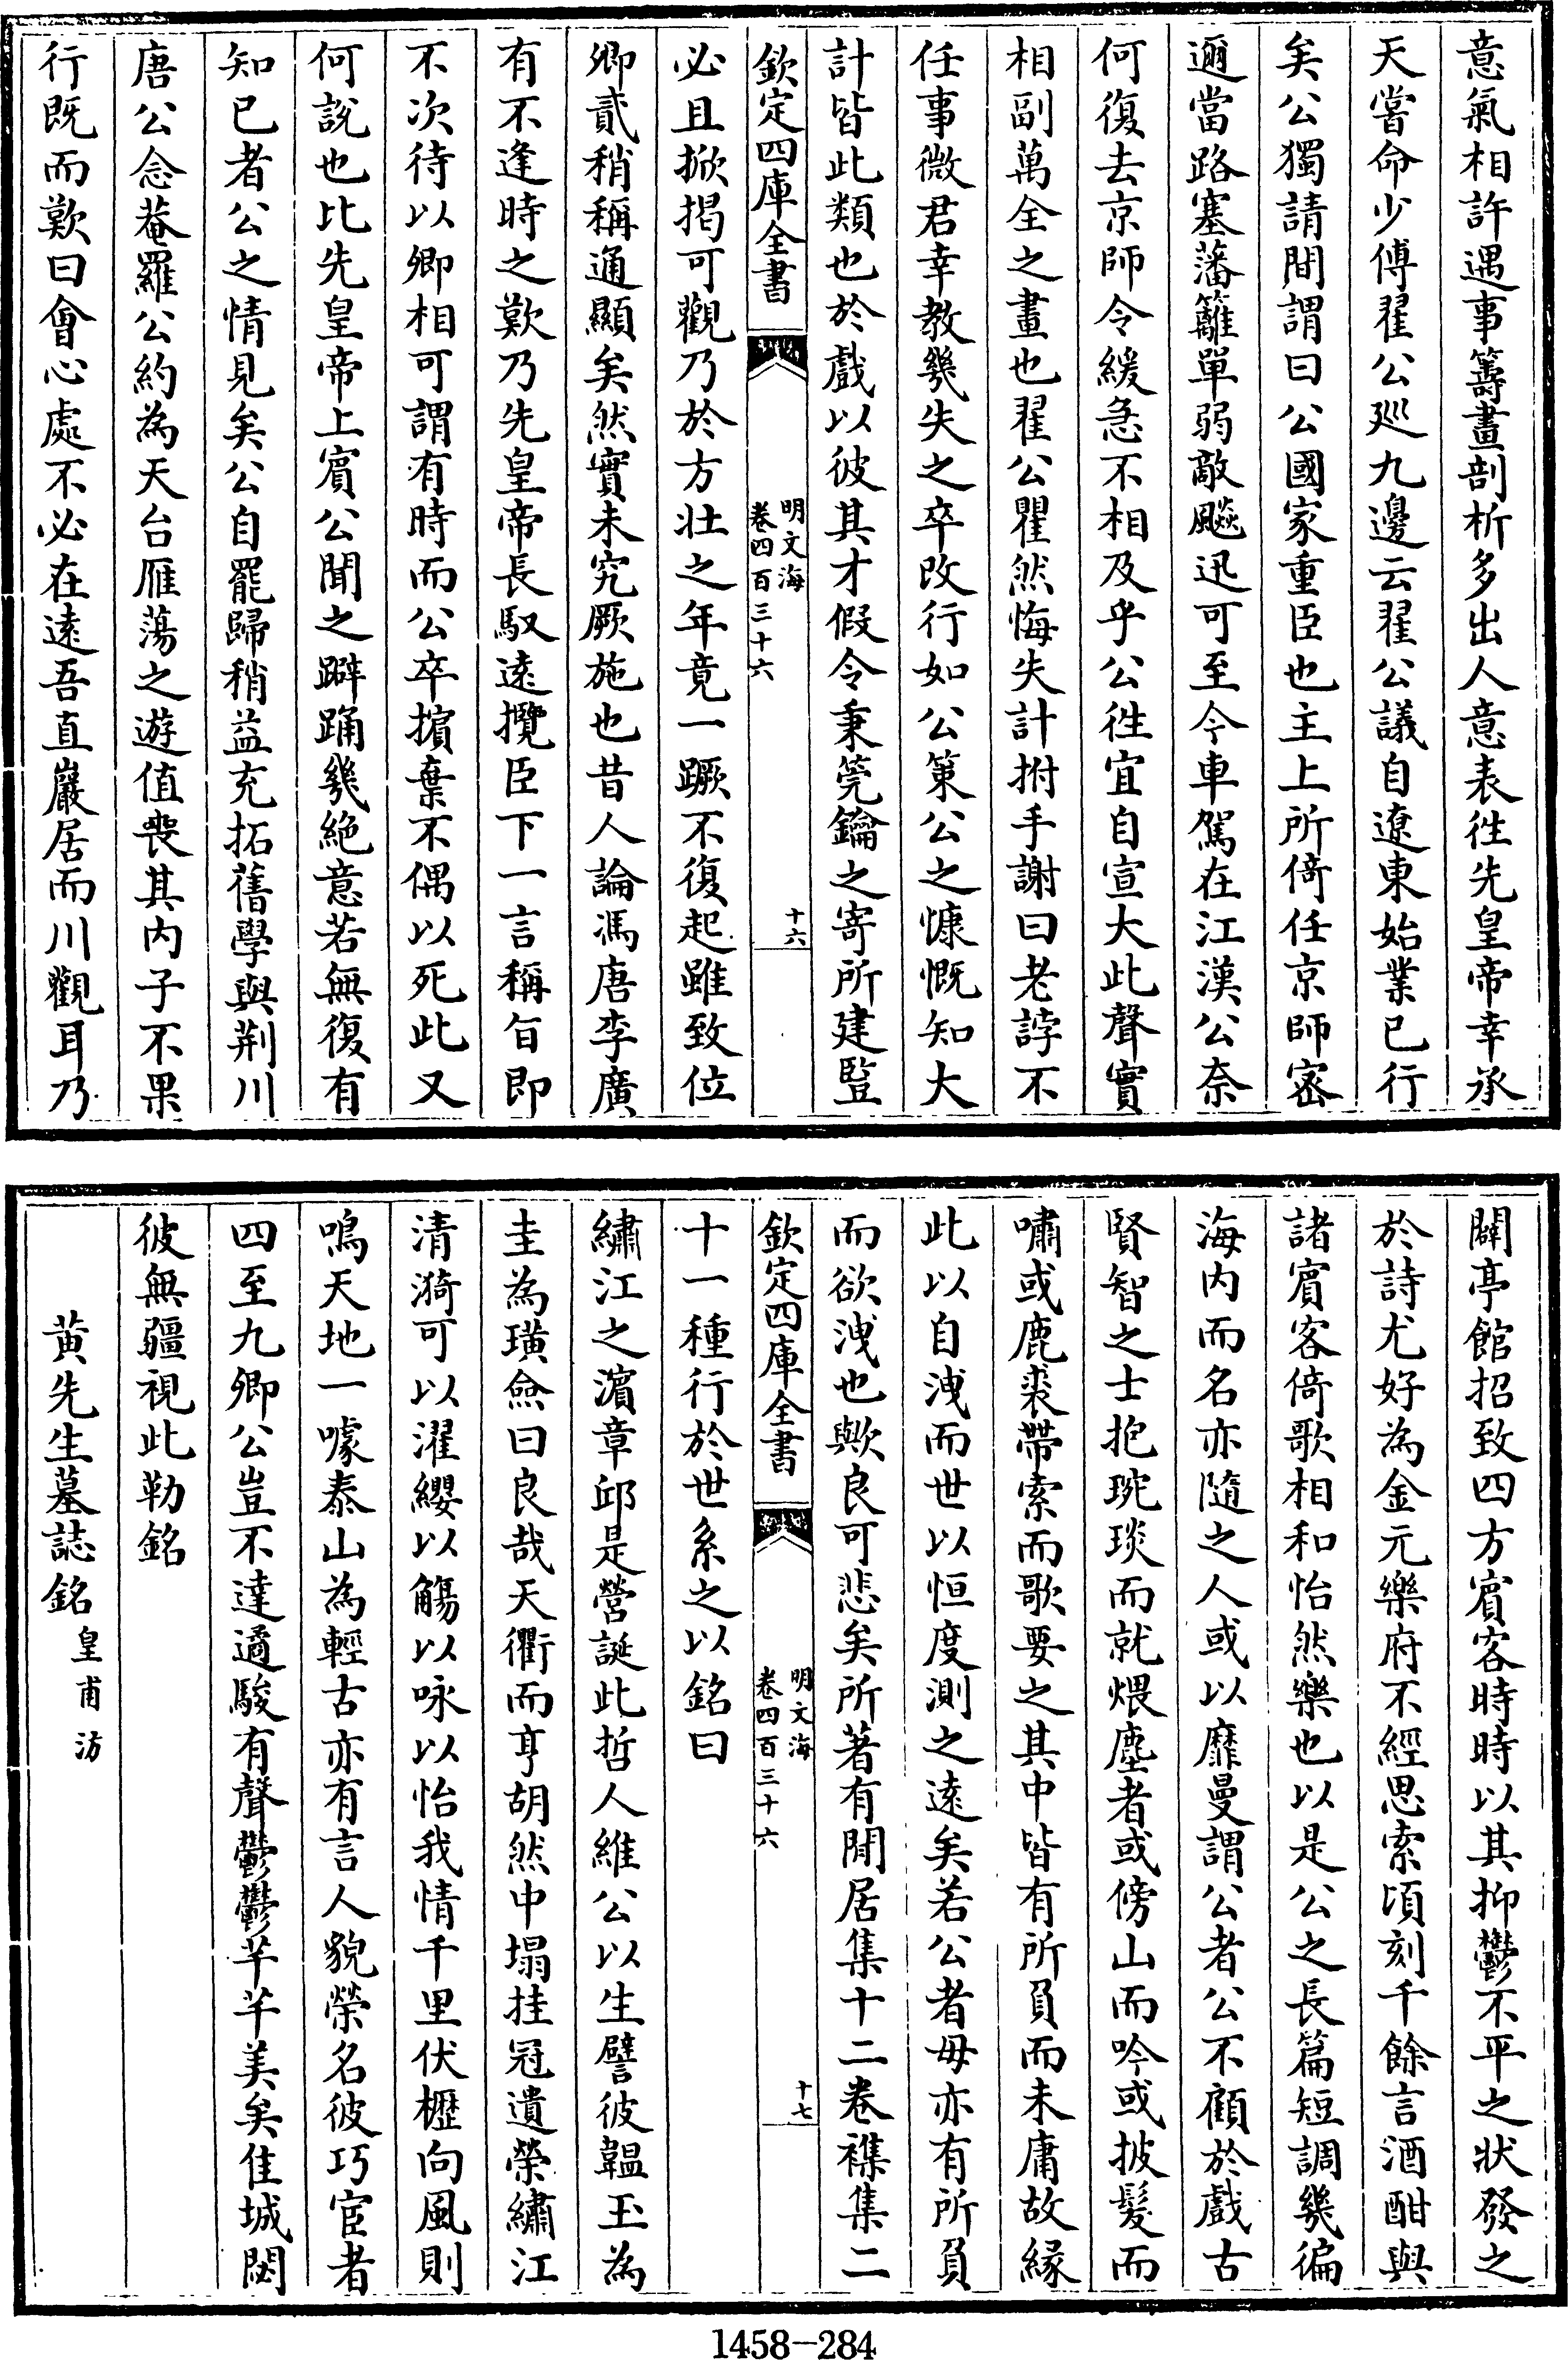 意氣相許遇事籌畫剖析多出人意表徃先皇帝幸承
天嘗命少傅翟公廵九邊云翟公議自遼東始業已行
矣公獨請間謂曰公國家重臣也主上所倚任京師密
邇當路塞藩籬單弱敵飈迅可至今車駕在江漢公奈
何復去京師令緩急不相及乎公徃宜自宣大此聲實
相副萬全之畫也翟公瞿然悔失計拊手謝曰老誖不
任事微君幸教幾失之卒改行如公策公之慷慨知大
計皆此類也於戲以彼其才假令秉筦鑰之寄所建豎
欽定四庫全書
明文海
卷四百三十六
十六
必且掀揭可觀乃於方壯之年竟一蹶不復起雖致位
卿貳稍稱通顯矣然實未究厥施也昔人論馮唐李廣
有不逢時之歎乃先皇帝長馭遠攬臣下一言稱旨即
不次待以卿相可謂有時而公卒擯棄不偶以死此又
何說也比先皇帝上賓公聞之躃踊幾絶意若無復有
知已者公之情見矣公自罷歸稍益充拓舊學與荆川
唐公念菴羅公約為天台雁蕩之遊值喪其内子不果
行既而歎曰會心處不必在遠吾直巖居而川觀耳乃
闢亭館招致四方賓客時時以其抑鬱不平之狀發之
於詩尤好為金元樂府不經思索頃刻千餘言酒酣與
諸賓客倚歌相和怡然樂也以是公之長篇短調幾徧
海内而名亦隨之人或以靡曼謂公者公不顧於戲古
賢智之士抱琬琰而就煨塵者或傍山而吟或披髮而
嘯或鹿裘帶索而歌要之其中皆有所負而未庸故緣
此以自洩而世以恒度測之遠矣若公者毋亦有所負
而欲洩也歟良可悲矣所著有閒居集十二巻襍集二
欽定四庫全書
明文海
卷四百三十六
十七
十一種行於世系之以銘曰
繡江之濵章邱是營誕此哲人維公以生譬彼韞玉為
圭為璜僉曰良哉天衢而亨胡然中塌挂冠遺榮繡江
清漪可以濯纓以觴以咏以怡我情千里伏櫪向風則
鳴天地一噱泰山為輕古亦有言人貌榮名彼巧宦者
四至九卿公豈不達遹駿有聲鬱鬱芊芊美矣佳城閟
彼無疆視此勒銘
黄先生墓誌銘 皇甫汸
1458-284